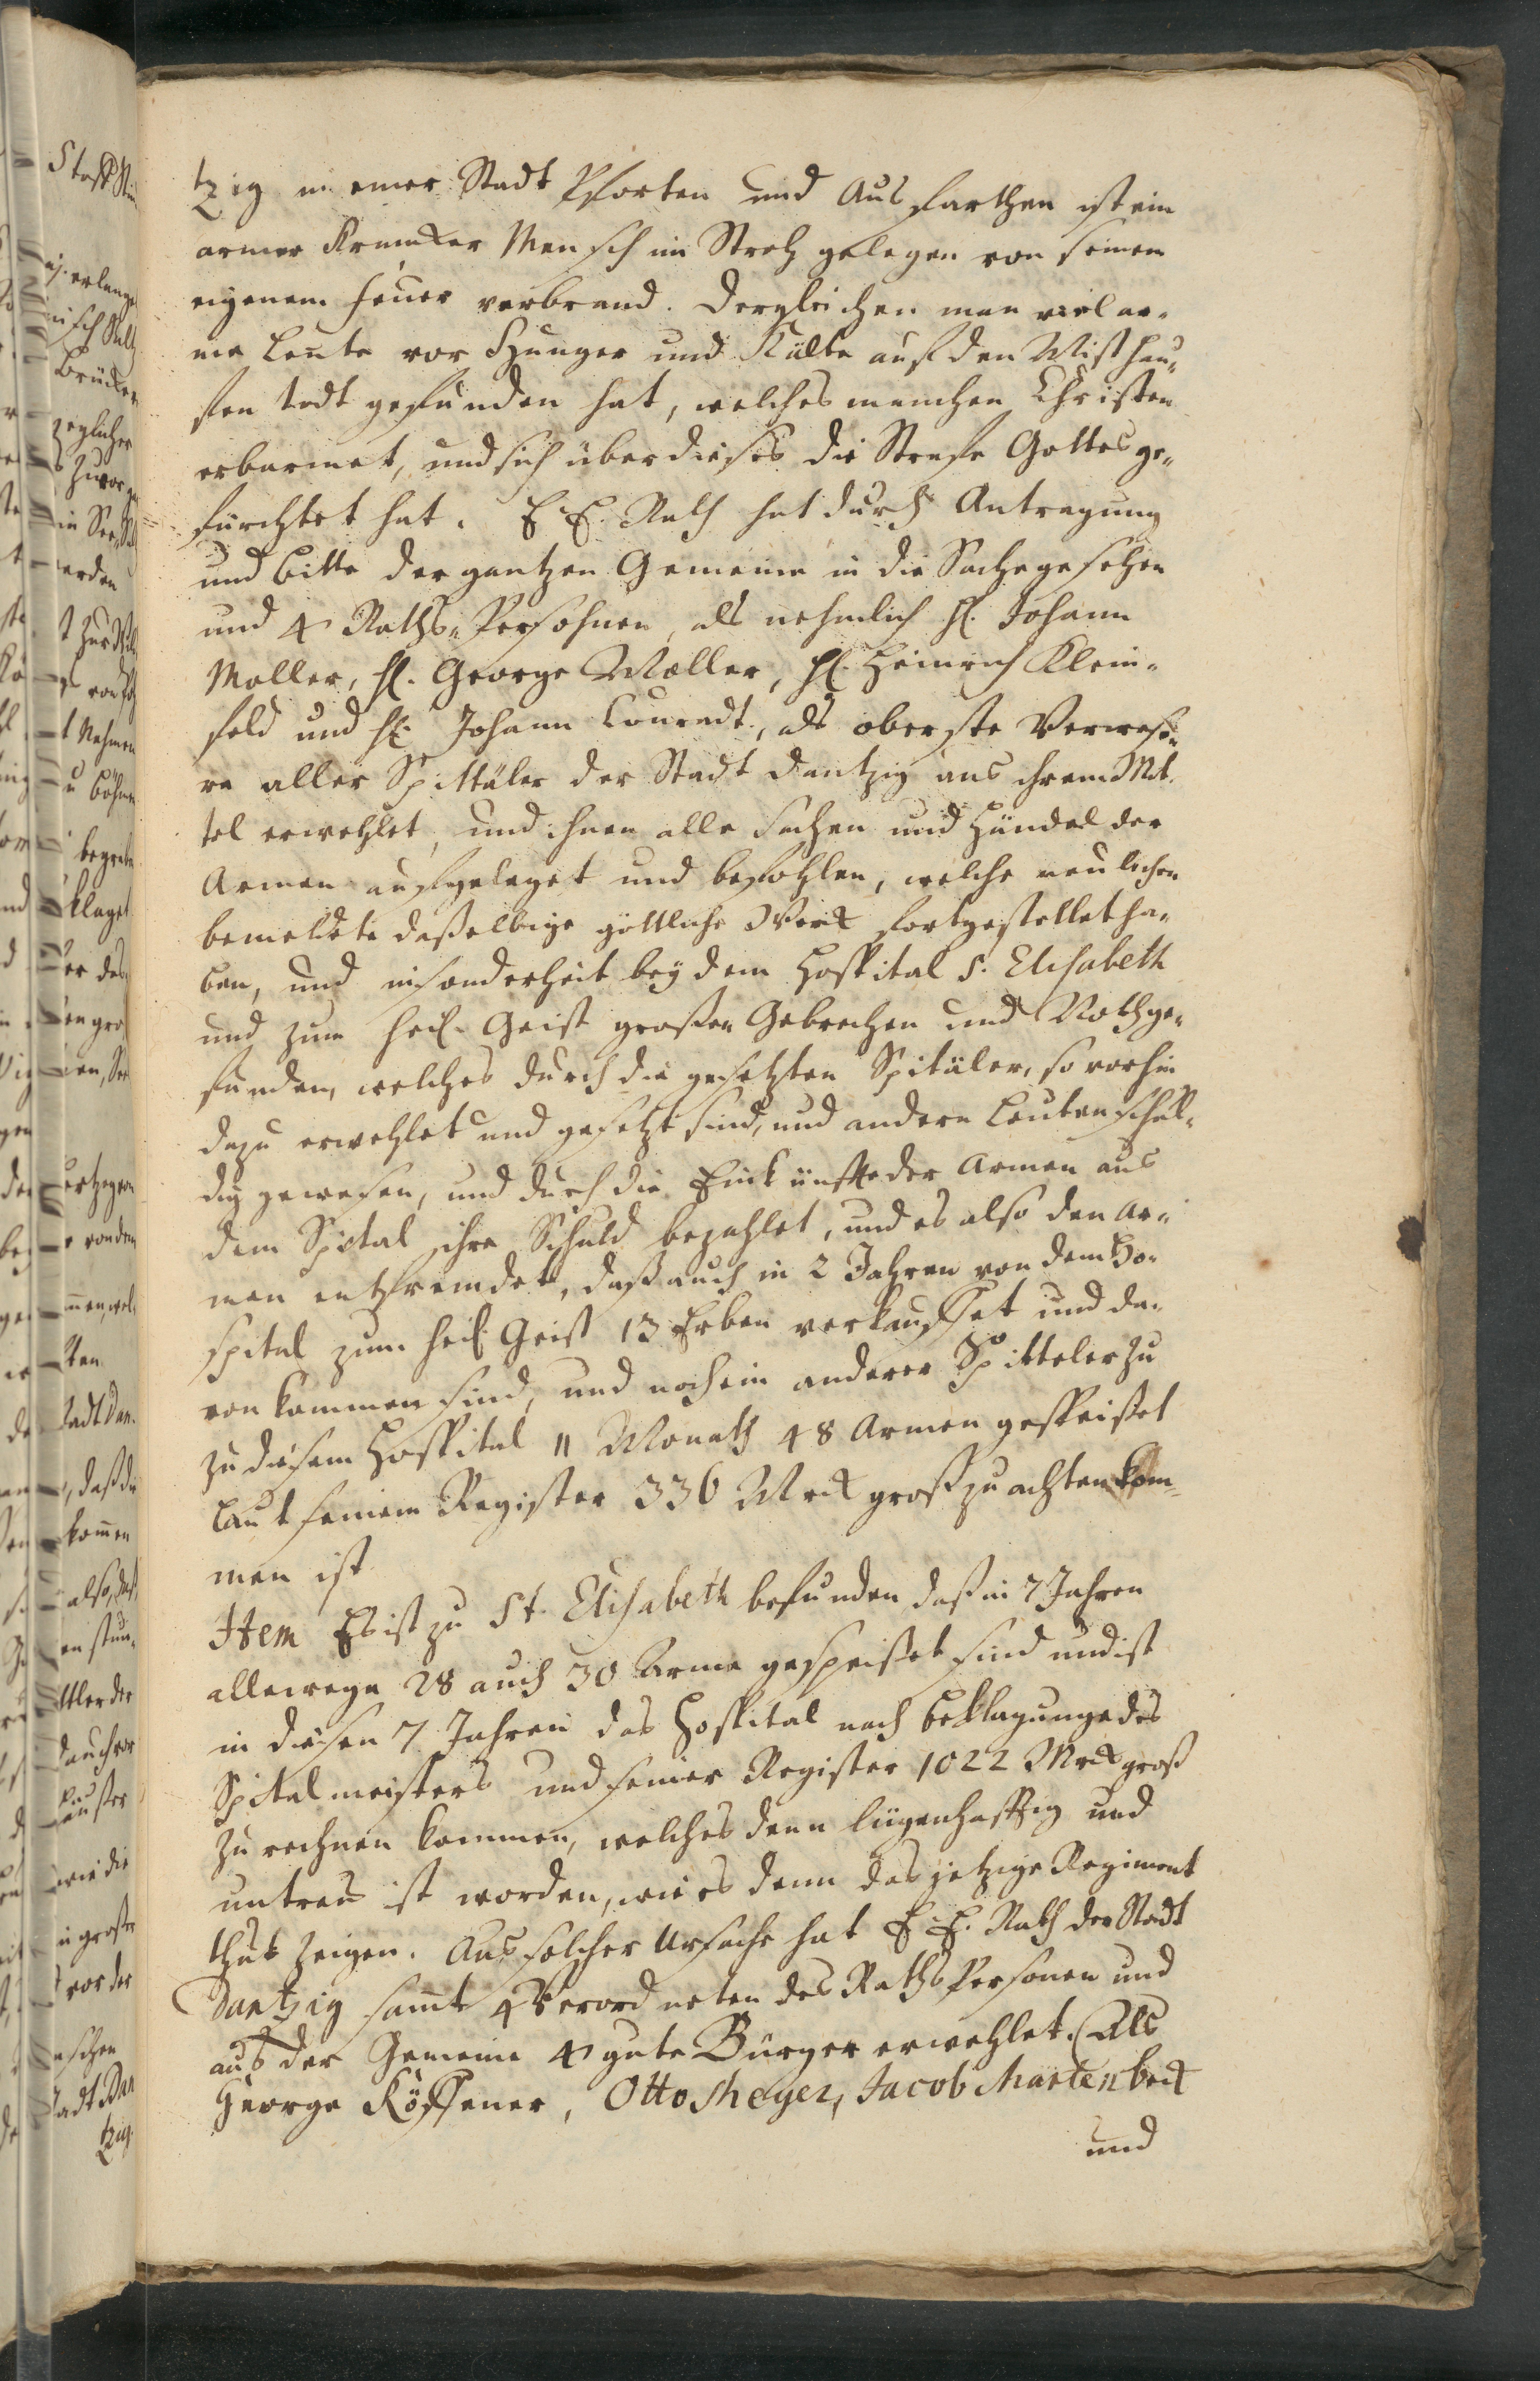 tzig in einer Stadt Pforten und Ausfarthen ist ein
armer Krancker Mensch im Stroh gelegen von seinem
eigenem Feuer verbrand. Dergleichen man viel ar-
me Leute vor Hunger und Kälte auf den Misthau-
fen todt gefunden hat, welches manchen Christen
erbarmet, und sich über dieses die Strafe Gottes ge-
fürchtet hat. E. E. Rath hat durch Antragung
und Bitte der gantzen Gemeine in die Sache gesehen
und 4 Raths-Persohnen, als nehmlich H. Johann
Moller, H. George Mœller, H. Heinrich Klein-
feld und H. Johann Conradt, als oberste Verwese-
re aller Spittäler der Stadt Dantzig aus ihrem Mit-
tel erwehlet, und ihnen alle Sachen und Händel der
Armen aufgeleget und befohlen, welche neulichen
bemeldete daßelbige göttliche Werck fortgestellet ha-
ben, und insonderheit bey dem Hospital S. Elisabeth
und zum heil. Geist großen Gebrechen und Noth ge-
funden, welches durch die gesetzten Spitäler, so vorhin
dazu erwehlet und gesetzt sind, und andern Leuten schul-
dig gewesen, und durch die Einkünffte der Armen aus
dem Spital ihre Schuld bezahlet, und es also den Ar-
men entfremdet, daß auch in 2 Jahren von dem Ho-
spital zum heil. Geist 13 Erben verkauffet und da-
von kommen sind, und noch ein anderer Spitteler zu
zu diesem Hospital 11 Monath 48 Armen gespeiset
laut seinem Register 336 Mrck groß zu achten kom-
men ist
Item Es ist zu St. Elisabeth befunden daß in 7 Jahren
allewege 28 auch 30 Arme gespeiset sind und ist
in diesen 7 Jahren das Hospital nach Beklagunge des
Spitalmeisters und seiner Register 1022 Mrck groß
zu rechnen kommen, welches denn lügenhafftig und
untreu ist worden, wie es denn das jetzige Regiment
thut zeigen. Aus solcher Ursache hat E. E. Rath der Stadt
Dantzig samt 4 Verordneten des Raths Personen und
aus der Gemeine 4 gute Bürger erwehlet. Als
George Rössener, Otto Meyer, Jacob Martenbeck
und